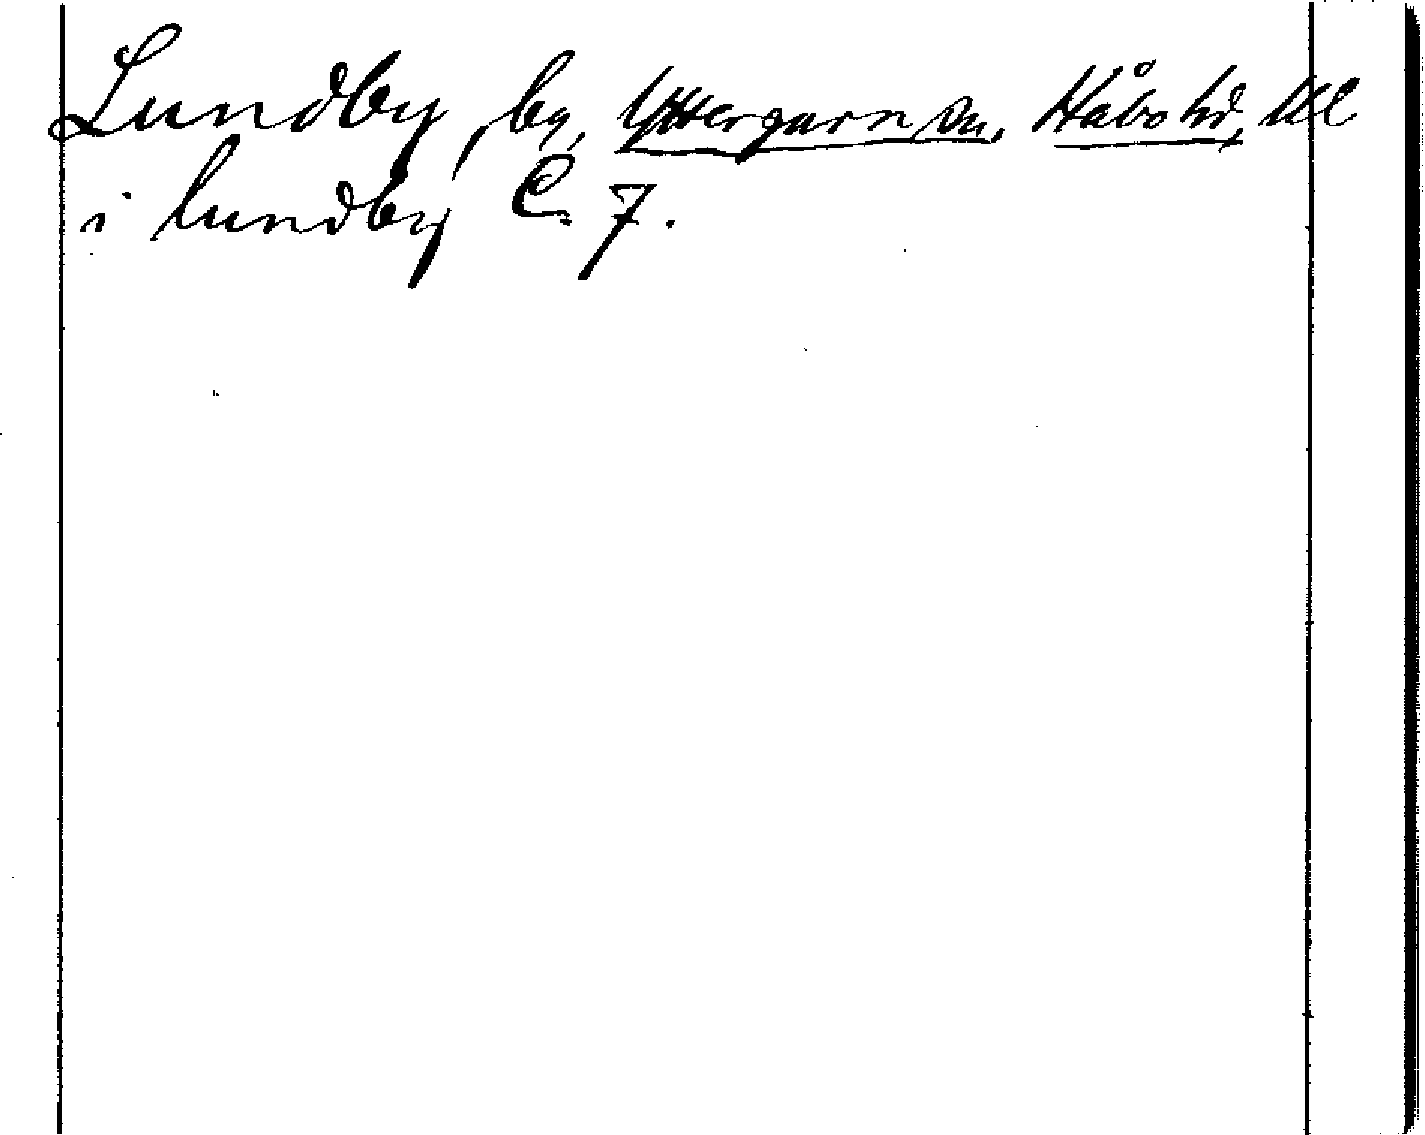 Lundby, by, Yttergarn sn, Håbo hd, Upl
i lundby C. 7.